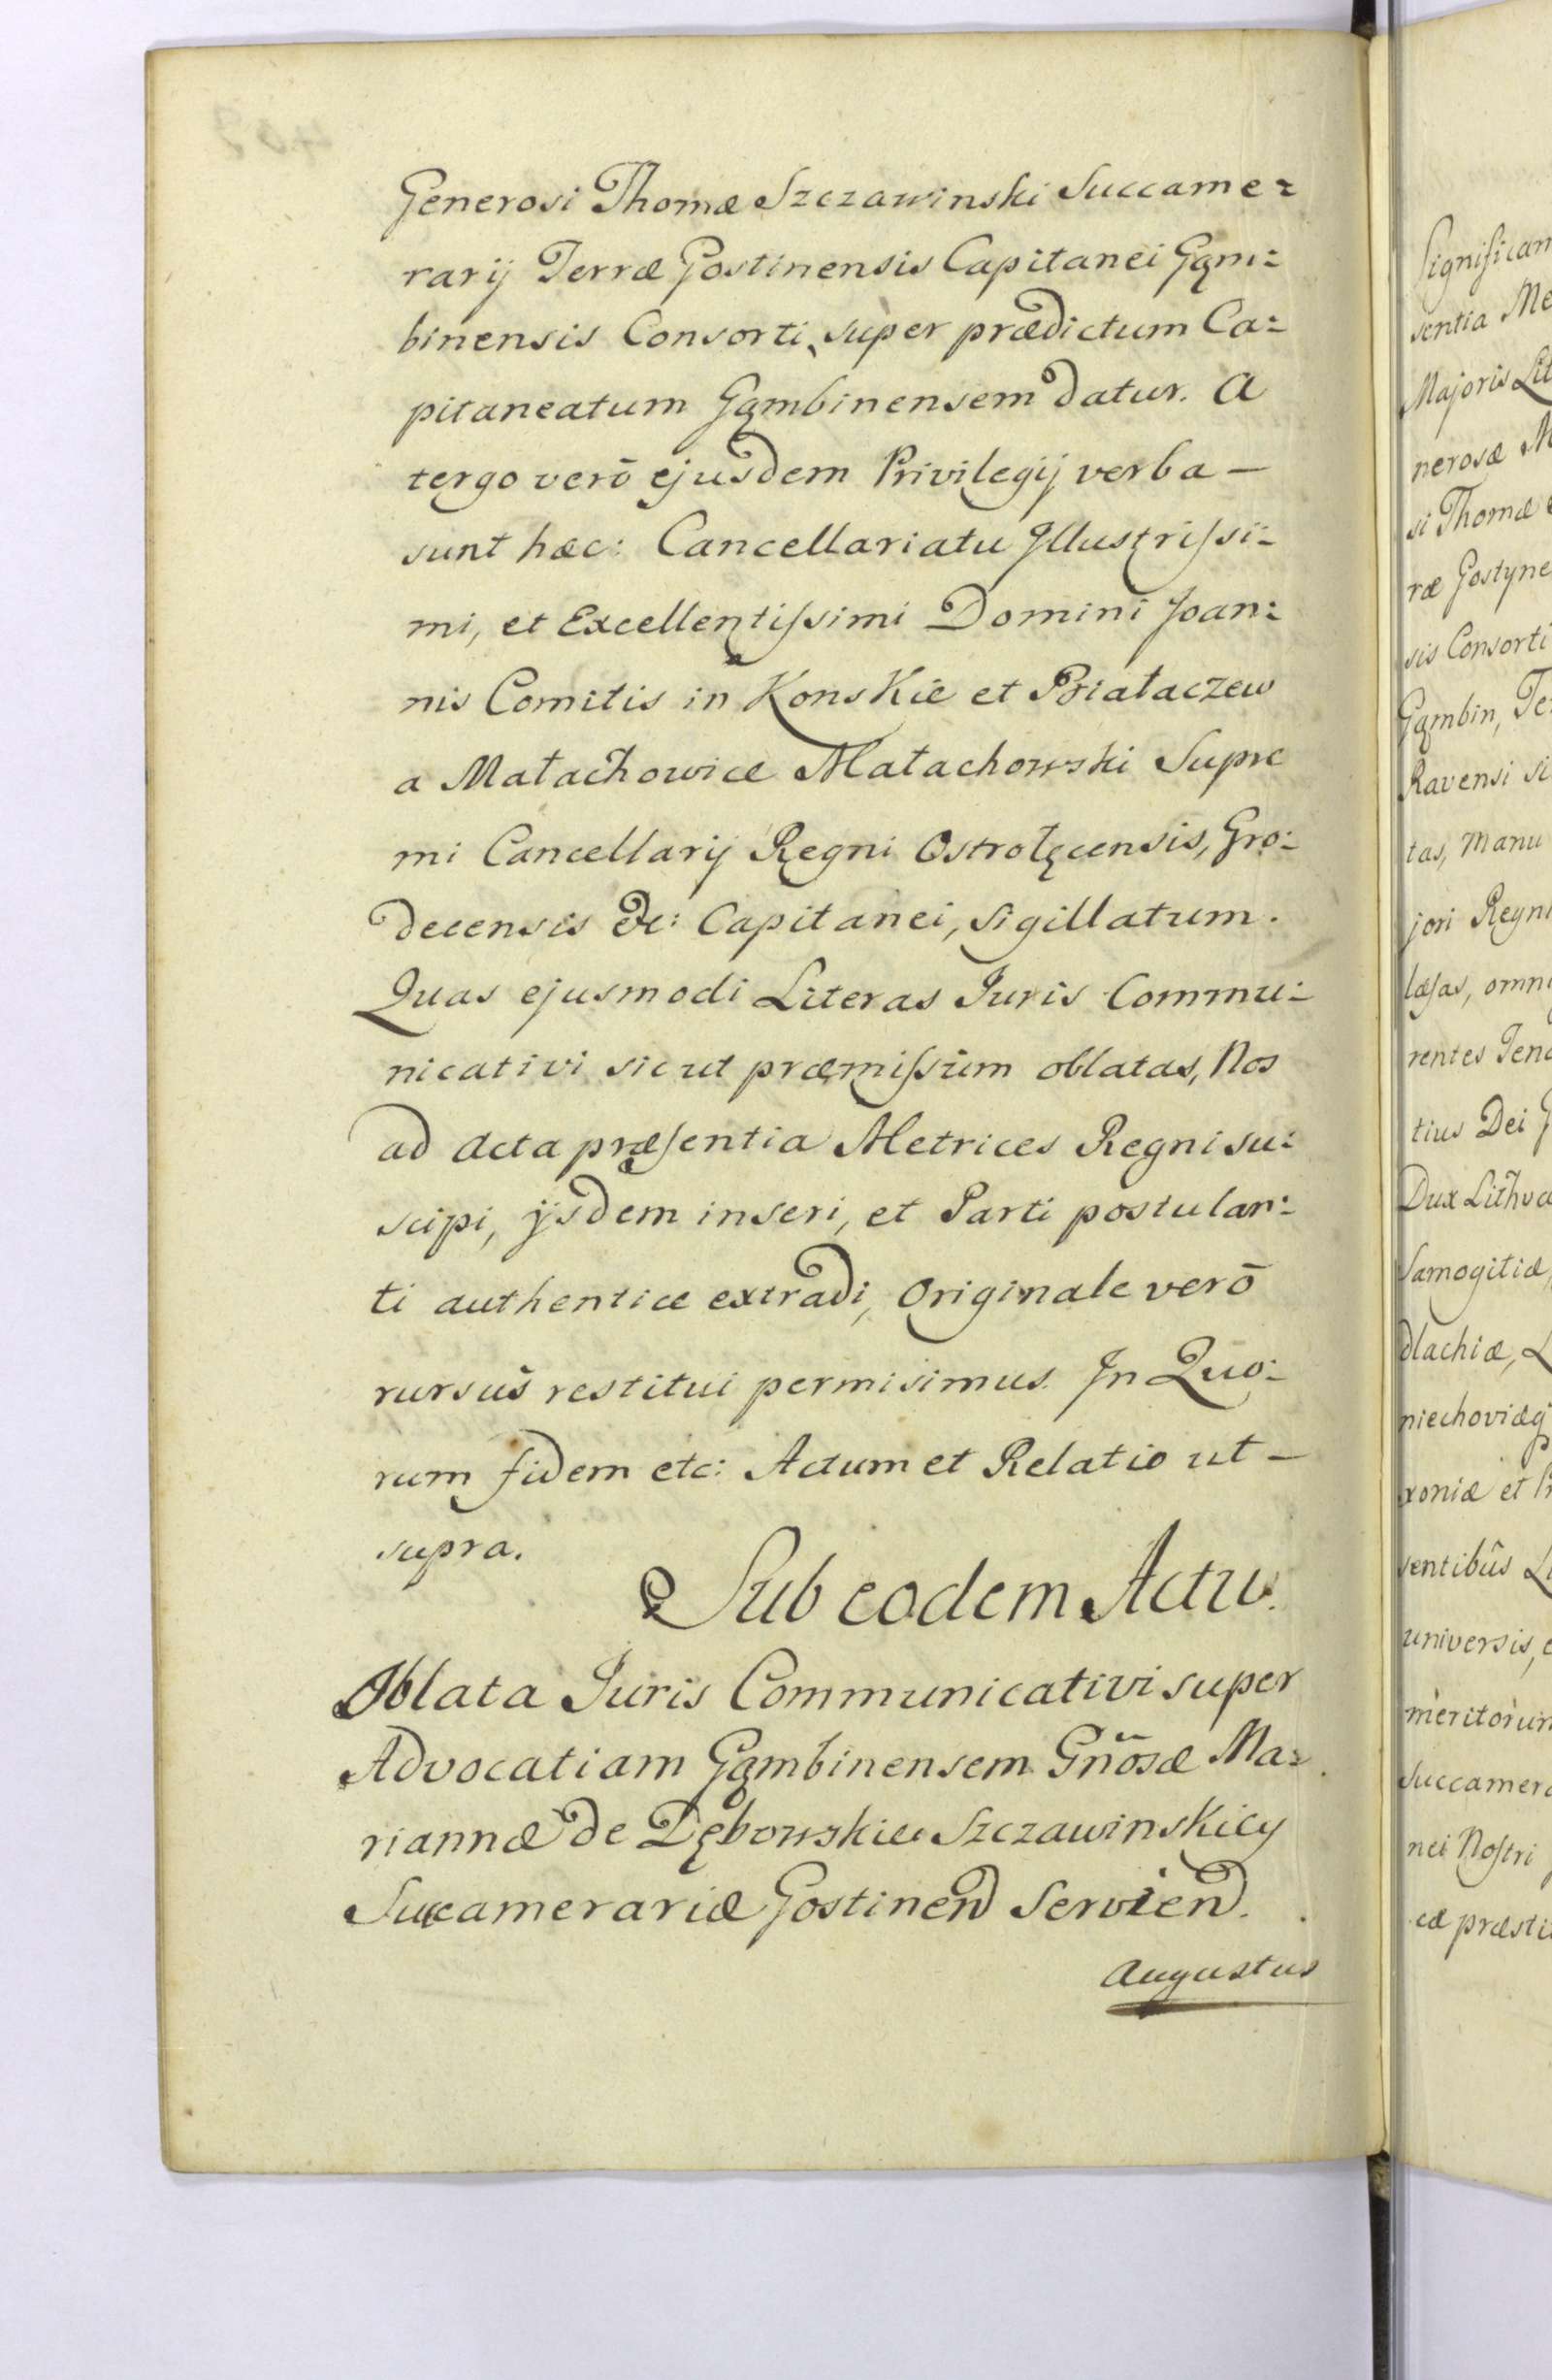 Generosi Thomæ Szczawinski Succame=
rarij Terræ Gostinensis Capitanei Gąm=
binensis Consorti, super prædictum Ca=
pitaneatum Gąmbinensem datur. A
tergo verō ejusdem Privilegij verba —
sunt hæc: Cancellariatu Jllustriſsi=
mi, et Excellentiſsimi Domini Joan=
nis Comitis in Konskie et Białaczew
a Małachowice Małachowski Supre
mi Cancellarij Regni Ostrołęcensis, Gro=
decensis &c: Capitanei, sigillatum.
Quas ejusmodi Literas Juris Commu=
nicativi sicut præmiſsum oblatas, Nos
ad Acta præſentia Metrices Regni su=
scipi, ijsdem inseri, et Parti postulan=
ti authentice extradi, Originale verō
rursus restitui permisimus. Jn Quo=
rum fidem etc: Actum et Relatio ut —
supra.
Sub eodem Actu.
Oblata Juris Communicativi super
Advocatiam Gąmbinensem Gñosæ Ma=
riannæ de Dębowskie Szczawinskiey
Succamerariæ Gostinen̄ Servien̄.
Augustus
Significam
sentia Me
Majoris Lit
nerosæ M
si Thomæ
ræ Gostyne
sis Consorti
Gąmbin, Te
Ravensi si
tas, Manu
jori Regni
læſas, omni
rentes Teno
tius Dei G
Dux Lithva
Samogitiæ,
dlachiæ, L
niechoviæq
xoniæ et P
sentibûs L
universis, e
meritorum
Succamera
nei Noſtri
cæ præsti